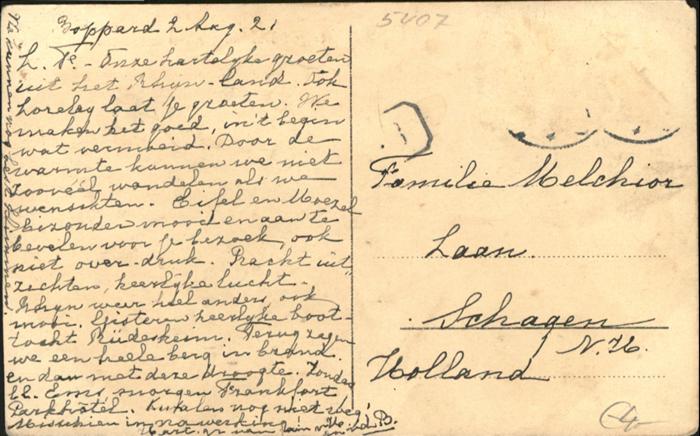 Boppard 2 Aug. 21
L. F. - Onze hartelyke groeten
uit het Rhyn-land. Ook
Loreley laat je groeten. We
maken het goed, in 't begin
wat vermoeid. Door de
warmte kunnen we niet
zooveel wandelen als we
wenschten. Eifel en Moezel
byzonder mooi en aan te
bevelen voor je bezoek, ook
niet over-druk. Pracht uit-
zichten, heerlyke lucht.
Rhyn weer heel anders, ook
mooi. Gisteren heerlyke boot-
tocht Rüdesheim. Terug zagen
we een heele berg in brand.
en dan met deze droogte. Zondag
Ems, morgen Frankfort
Parkhôtel. nog niet
Misschien in nawerking
Hart. gr. van
B.
5407
Familie Melchior
Laan
Schagen
N.H.
Holland